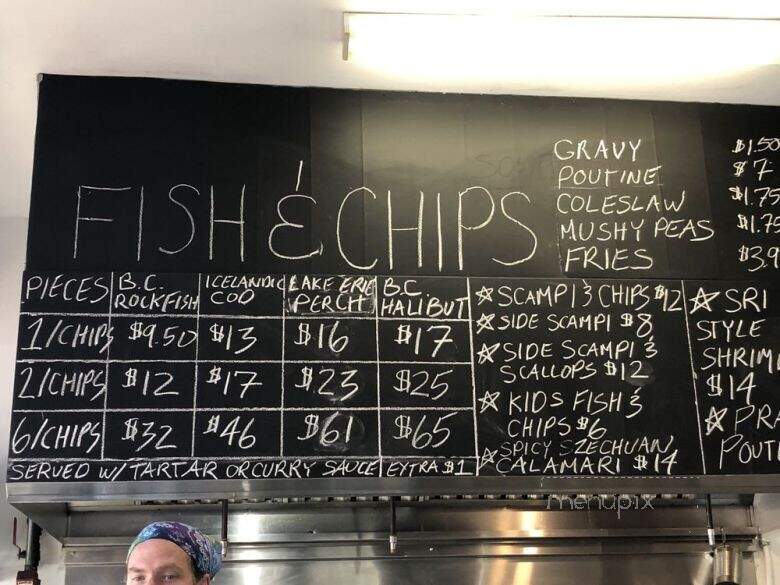 GRAVY $1.50
POUTINE $7
COLESLAW $1.75
MUSHY PEAS $1.75
FRIES $3.9
FISH & CHIPS
PIECES B.C. ROCKFISH ICELANDIC COD LAKE ERIE PERCH B.C. HALIBUT
1/CHIPS $9.50 $13 $16 $17
2/CHIPS $12 $17 $23 $25
6/CHIPS $32 $46 $61 $65
SERVED W/ TARTAR OR CURRY SAUCE EXTRA $1
☆ SCAMPI & CHIPS $12
☆ SIDE SCAMPI $8
☆ SIDE SCAMPI &
SCALLOPS $12
☆ KIDS FISH &
CHIPS $6
☆ SPICY SZECHUAN
CALAMARI $14
☆ SRI
STYLE
SHRIM
$14
☆ PRA
POUTI
menupix